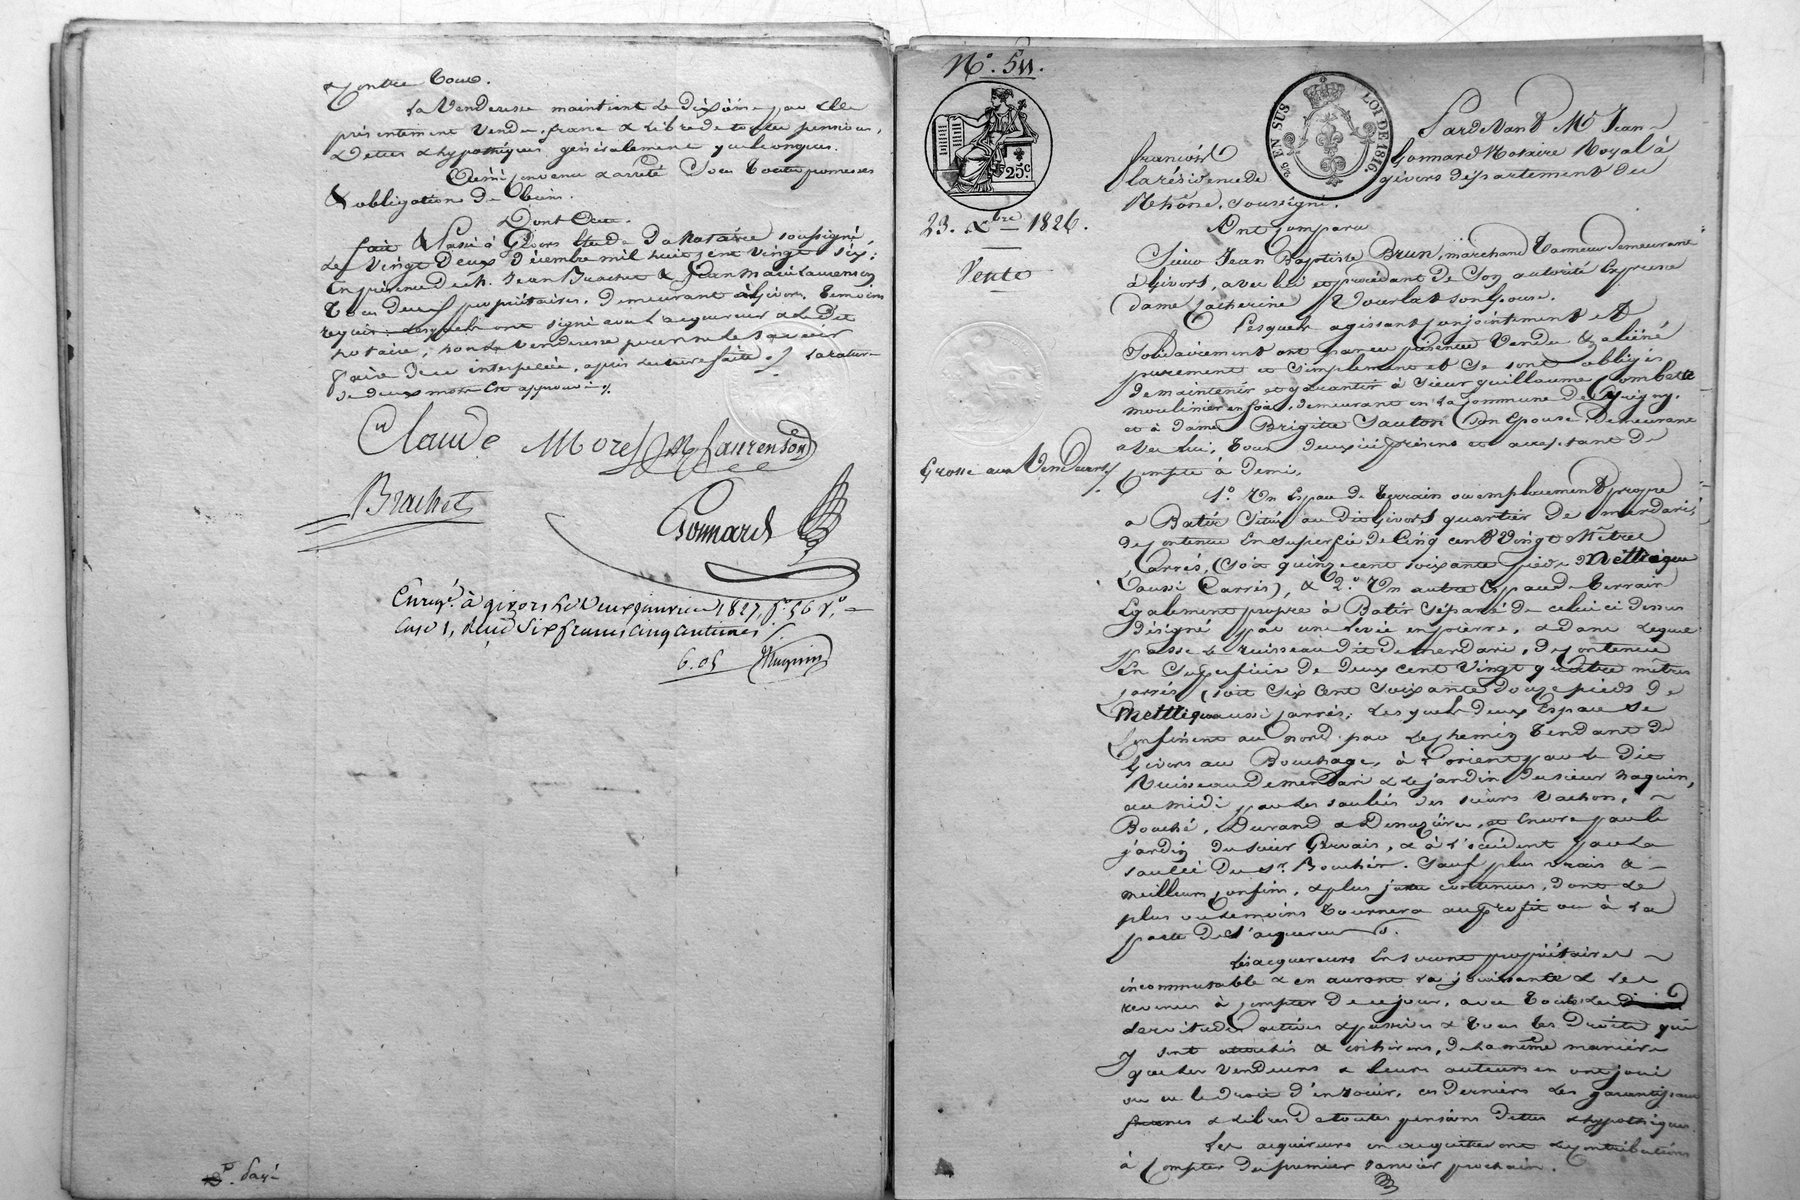 & contre tous.
La Venderesse maintient le dixième par elle
présentement vendu, franc & libre de toutes pensions,
dettes & hypothèques généralement quelconques.
Ainsi convenu & arrêté sous toutes promesses
& obligations de biens.
Dont acte.
fait & Passé à Givors Etude du Notaire soussigné,
Le Vingt Deux Décembre mil huit cent vingt six;
En présence de Jean Brachet & Jean Marie Laurenson
tous deux propriétaires, demeurant à Givors, témoins
requis: lesquels ont signé avec l'acquéreur & le dit
notaire, non la Venderesse pour ne le savoir
faire de ce interpellée, après lecture faite. La rature
de deux mots est approuvée.
Claude Morel JM Laurenson
Brachet
Gonnard
Enregé. à Givors le deux janvier 1827, f° 56 r°
case 1, reçu six francs cinq centimes
6.05
payé
N°. 511.
25c
25c EN SUS
LOI DE 1816
23. Xbre 1826.
Vente
Grosse aux Vendeurs
Pardevant Me Jean
François Gonnard Notaire Royal à
la résidence de Givors département du
Rhône, soussigné.
Ont Comparu
Sieur Jean Baptiste Brun, marchand tanneur demeurant
à Givors, avec lui et procédant de son autorité Expresse
dame Catherine Dourlat son Epouse.
Lesquels agissant conjointement et
solidairement ont par ces présentes Vendu & aliéné
purement et simplement et se sont obligés
de maintenir et garantir à sieur guillaume Combette
moulinier en soie, demeurant en la commune de Cuigny,
et à dame Brigitte Sauton son Epouse, demeurant
avec lui, tous deux ici présens et acceptant de
Compte à demi,
1°. Un Espace de terrain ou emplacement propre
à Batir Situé au dit Givors quartier de mendari,
de contenue En superficie de Cinq cent Vingt Mètres
Carrés, (soit quinze cent soixante pieds métrique
aussi Carrés), & 2°. Un autre Espace de terrain
Egalement propre à Batir Séparé de celui ci dessus
désigné par une levée en pierre, & dans lequel
passe le ruisseau dit de mendari, de contenue
En Superficie de deux cent Vingt quatre mètres
carrés, (soit six cent soixante douze pieds de
métrique aussi carrés; Lesquels deux Espaces se
Confinent au nord par le chemin tendant de
Givors au Bouchage, à l'orient par le dit
Ruisseau de mendari & le jardin du sieur naquin,
au midi par les saulées des sieurs Vachon,
Bouché, Durand & Demezière, et Encore par le
jardin du sieur Gervais, & à l'occident par la
saulée du Sr. Bouchér. Sauf plus vrais &
meilleurs confins, & plus juste contenue, dont le
plus ou le moins tournera au profit ou à la
perte de l'acquéreur.
Les acquereurs En seront propriétaires
incommutable & en auront la jouissance & les
revenus à compter de ce jour, avec toutes les
servitudes actives & passives & tous les droits qui
y sont attachés & inhérens, de la même manière
que les Vendeurs & leurs auteurs en ont joui
ou eu le droit d'en jouir, ces derniers les garantissant
francs & libres de toutes pensions dettes & hypothèques
Les acquéreurs en acquitteront les contributions
à Compter du premier Janvier prochain.